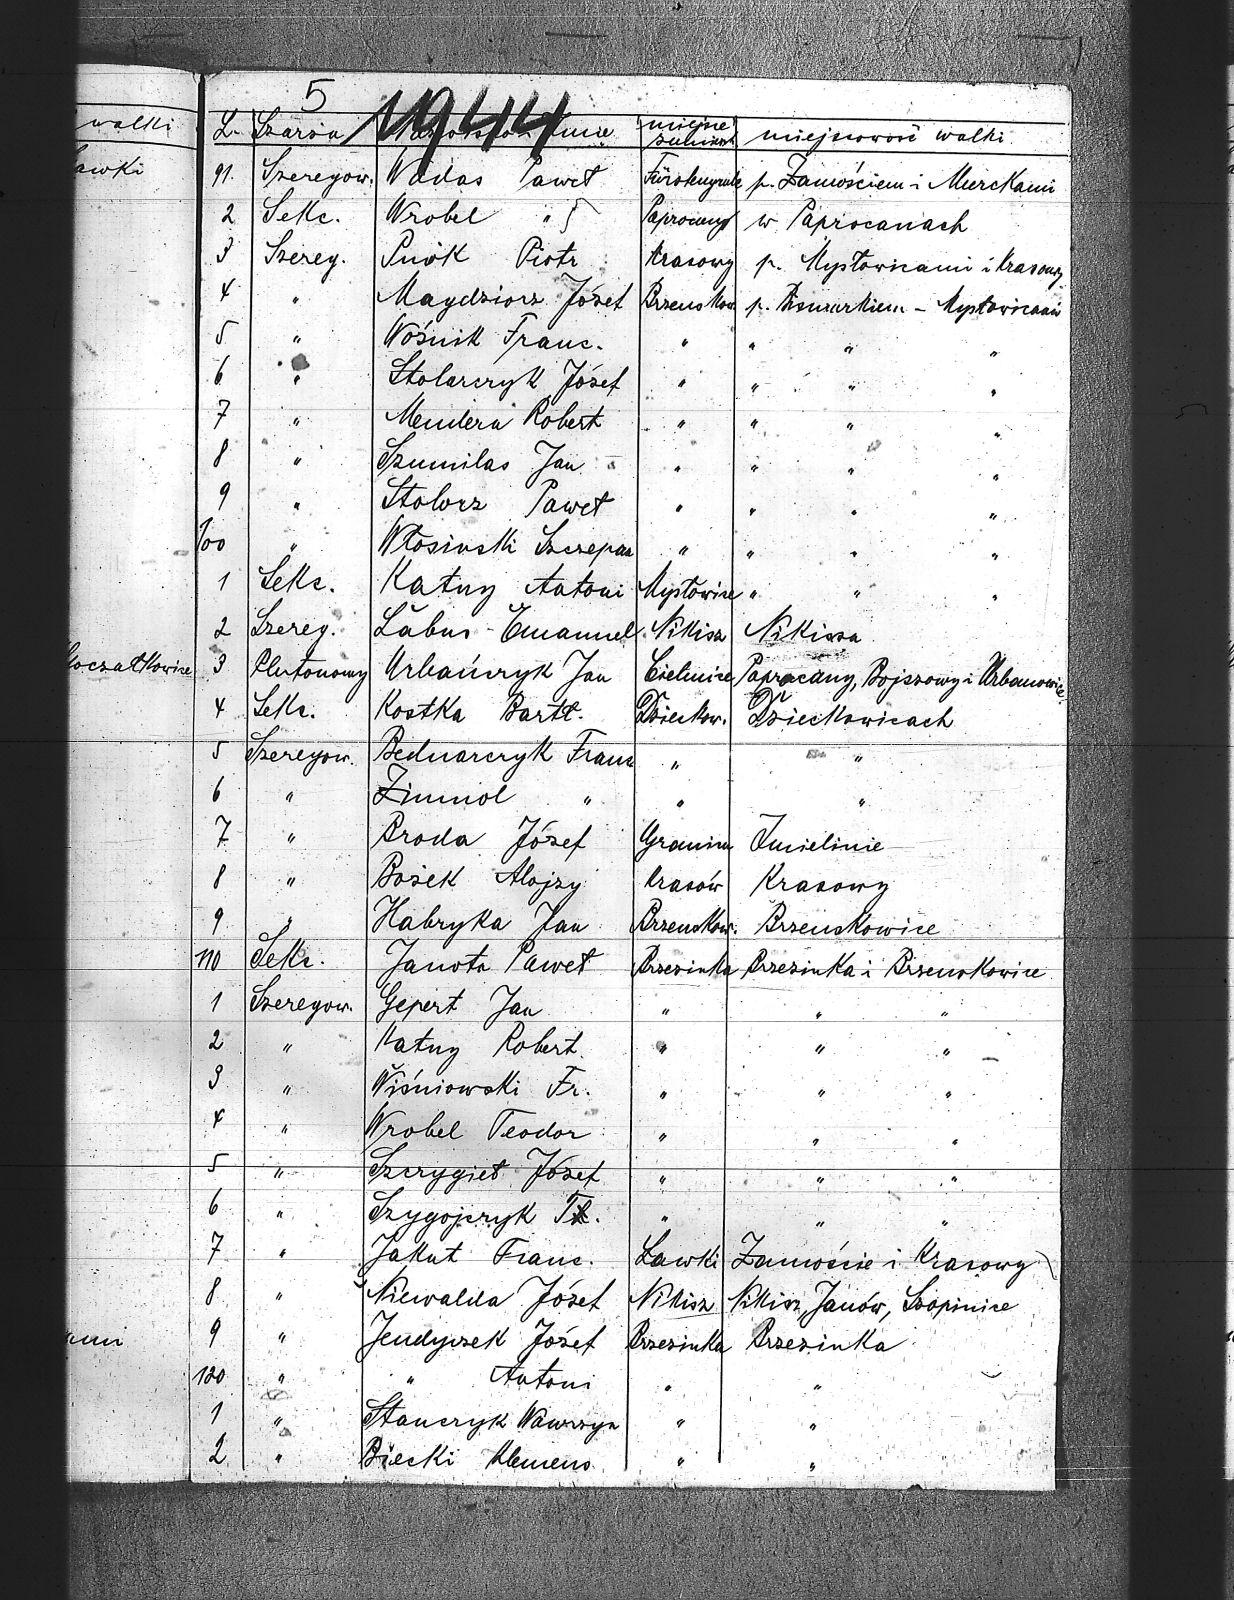 walki
awki
koczatkowice
ami
5
1944
L. Szarża Nazwisko i Imie miejsc zamieszk miejscowość walki
91. Szeregow. Wadas Paweł Fürstengrube p. Zamościem i Murckami
2 Sekc. Wrobel " Paprocany w Paprocanach
3 Szereg. Pniok Piotr Krasowy p. Mysłowicami i Krasowy
4 " Maydziorz Józef Brzenskow. p. Bismarkiem - Mysłowicami
5 " Wośnik Franc. " " " "
6 " Stolarczyk Józef " " " "
7 " Mendera Robert " " " "
8 " Szumilas Jan " " " "
9 " Stolorz Paweł " " " "
100 " Włosinski Szczepan " " " "
1 Sekc. Katny Antoni Mysłowice " " "
2 Szereg. Labus Emanuel Nikisz Nikisza
3 Plutonowy Urbańczyk Jan Cielmice Paprocany, Bojszowy i Urbanowice
4 Sekc. Kostka Bartł. Dzieckow. Dzieckowicach
5 Szeregow. Bednarczyk Franc " "
6 " Zimnol " " "
7 " Broda Józef Granice Imielinie
8 " Bożek Alojzy Krasów Krasowy
9 " Habryka Jan Brzenskow. Brzenskowice
110 Sekc. Janota Paweł Brzezinka Brzezinka i Brzenskowice
1 Szeregow. Gepert Jan " " "
2 " Katny Robert " " "
3 " Wiśniowski Fr. " " "
4 " Wrobel Teodor " " "
5 " Szczygieł Józef " " "
6 " Szygojczyk " " "
7 " Jakut Franc. Ławki Zamoście i Krasowy
8 " Niewalda Józef Nikisz Nikisz, Janów, Szopinice
9 " Jendyczek Józef Brzezinka Brzezinka
120 " " Antoni " "
1 " Stanczyk Wawrzyn " "
2 " Biecki Klemens " "